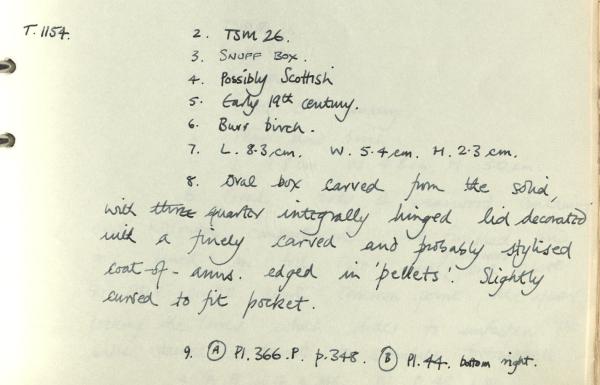 T.1154.
2. TSM 26.
3. SNUFF BOX.
4. Possibly Scottish
5. Early 19th century.
6. Burr birch.
7. L. 8.3 cm. W. 5.4 cm. H. 2.3 cm.
8. Oval box carved from the solid,
with three quarter integrally hinged lid decorated
with a finely carved and probably stylised
coat-of-arms. edged in 'pellets'. Slightly
cursed to fit pocket.
9. (A) Pl. 366. P. p. 348. (B) Pl. 44. bottom right.